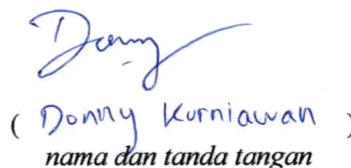 Donny
( Donny Kurniawan )
nama dan tanda tangan